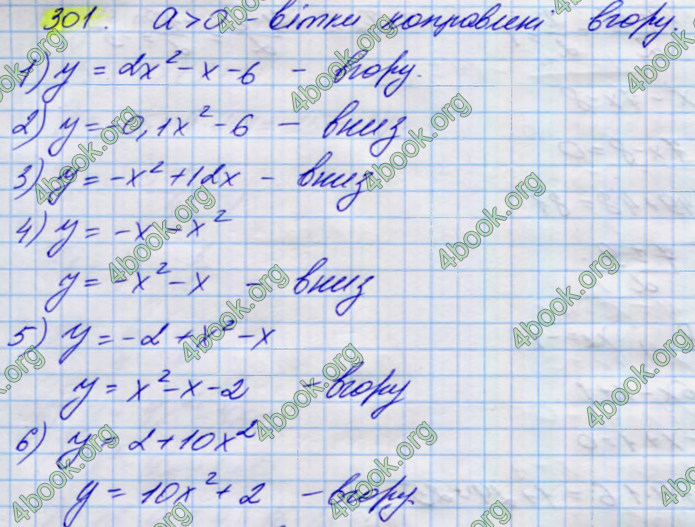 301. a>0 - вітки направлені вгору.
1) y = 2x² - x - 6 - вгору.
2) y = -0,1x² - 6 - вниз
3) y = -x² + 12x - вниз
4) y = -x - x²
y = -x² - x - вниз
5) y = -2 + x² - x
y = x² - x - 2 - вгору
6) y = 2 + 10x²
y = 10x² + 2 - вгору.
4book.org